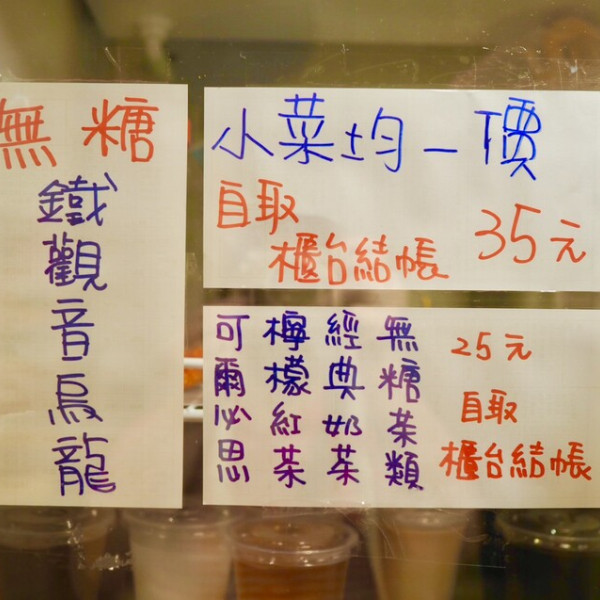 無糖
鐵觀音烏龍
小菜均一價
自取
櫃台結帳
35元
無糖茶類
經典奶茶
檸檬紅茶
可爾必思
25元
自取
櫃台結帳